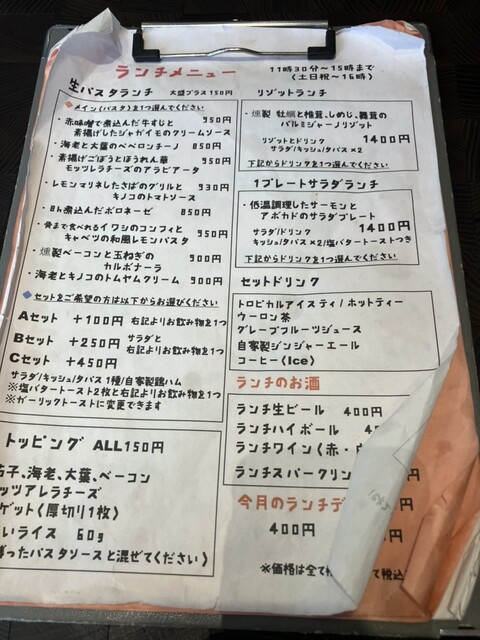 ランチメニュー
11時30分～15時まで
(土日祝～16時)
生パスタランチ 大盛プラス150円
◆メイン(パスタ)を1つ選んでください
・赤味噌で煮込んだ牛すじと 950円
素揚げしたジャガイモのクリームソース
・海老と大葉のペペロンチーノ 850円
・素揚げごぼうとほうれん草 950円
モッツレラチーズのアラビアータ
・レモンマリネしたさばのグリルと 930円
キノコのトマトソース
・8h煮込んだボロネーゼ 850円
・骨まで食べれるイワシのコンフィと 950円
キャベツの和風レモンパスタ
・燻製ベーコンと玉ねぎの 900円
カルボナーラ
・海老とキノコのトムヤムクリーム 900円
◆セットをご希望の方は以下からお選びください
Aセット +100円 右記よりお飲み物を1つ
Bセット +250円 サラダと
右記よりお飲み物を1つ
Cセット +450円
サラダ/キッシュ/タパス1種/自家製鶏ハム
※塩バタートースト2枚と右記よりお飲み物を1つ
※ガーリックトーストに変更できます
トッピング ALL150円
茄子、海老、大葉、ベーコン
ッツアレラチーズ
ゲット(厚切り1枚)
いライス 60g
ったパスタソースと混ぜてください)
リゾットランチ
・燻製 牡蠣と椎茸、しめじ、舞茸の
パルミジャーノリゾット
リゾットとドリンク 1400円
サラダ/キッシュ/タパス×2
下記からドリンクを1つ選んでください
1プレートサラダランチ
・低温調理したサーモンと
アボカドのサラダプレート
サラダ/ドリンク 1400円
キッシュ/タパス×2/塩バタートーストつき
下記からドリンクを1つ選んでください
セットドリンク
トロピカルアイスティ/ホットティー
ウーロン茶
グレープフルーツジュース
自家製ジンジャーエール
コーヒー(Ice)
ランチのお酒
ランチ生ビール 400円
ランチハイボール
ランチワイン(赤・
ランチスパークリン 円
今月のランチデ 円
400円 円
※価格は全て て税込